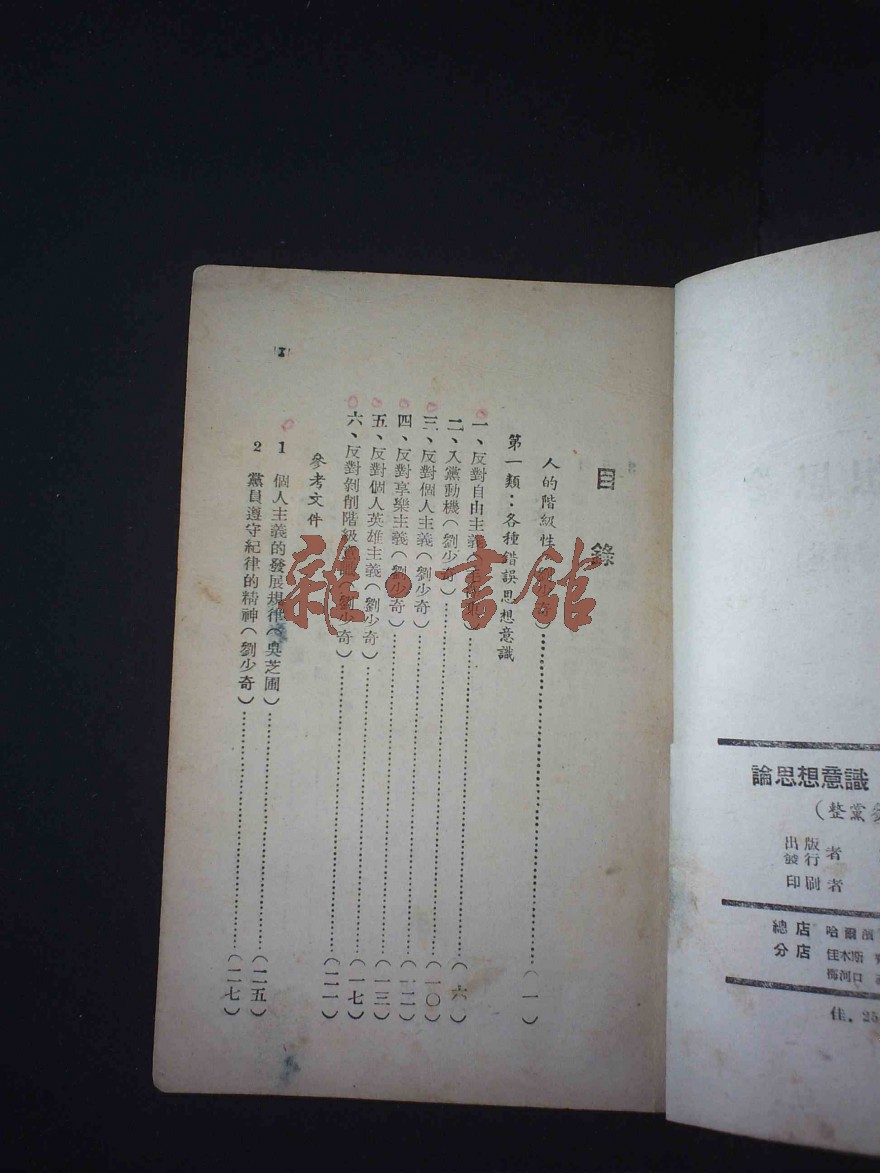 目錄
人的階級性……(一)
第一類：各種錯誤思想意識
一、反對自由主義(……(六)
二、入黨動機(劉少奇)……(一〇)
三、反對個人主義(劉少奇)……(一二)
四、反對享樂主義(劉少奇)……(一三)
五、反對個人英雄主義(劉少奇)……(一七)
六、反對剝削階級意識(劉少奇)……(二一)
參考文件
1 個人主義的發展規律(吳芝圃)……(二五)
2 黨員遵守紀律的精神(劉少奇)……(二七)
雜·書館
論思想意識
(整黨
出版
發行者
印刷者
總店 哈爾濱
分店 佳木斯
梅河口
佳．25